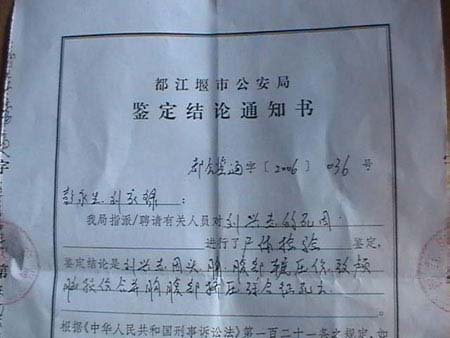 都江堰市公安局
鉴定结论通知书
都公鉴通字〔2006〕036号
刘
我局指派/聘请有关人员对刘兴志的死因
进行了尸体检验鉴定。
鉴定结论是刘兴志因头、胸、腹部碾压伤致颅
脑损伤合并胸腹部挤压综合征死亡
根据《中华人民共和国刑事诉讼法》第一百二十一条之规定，如